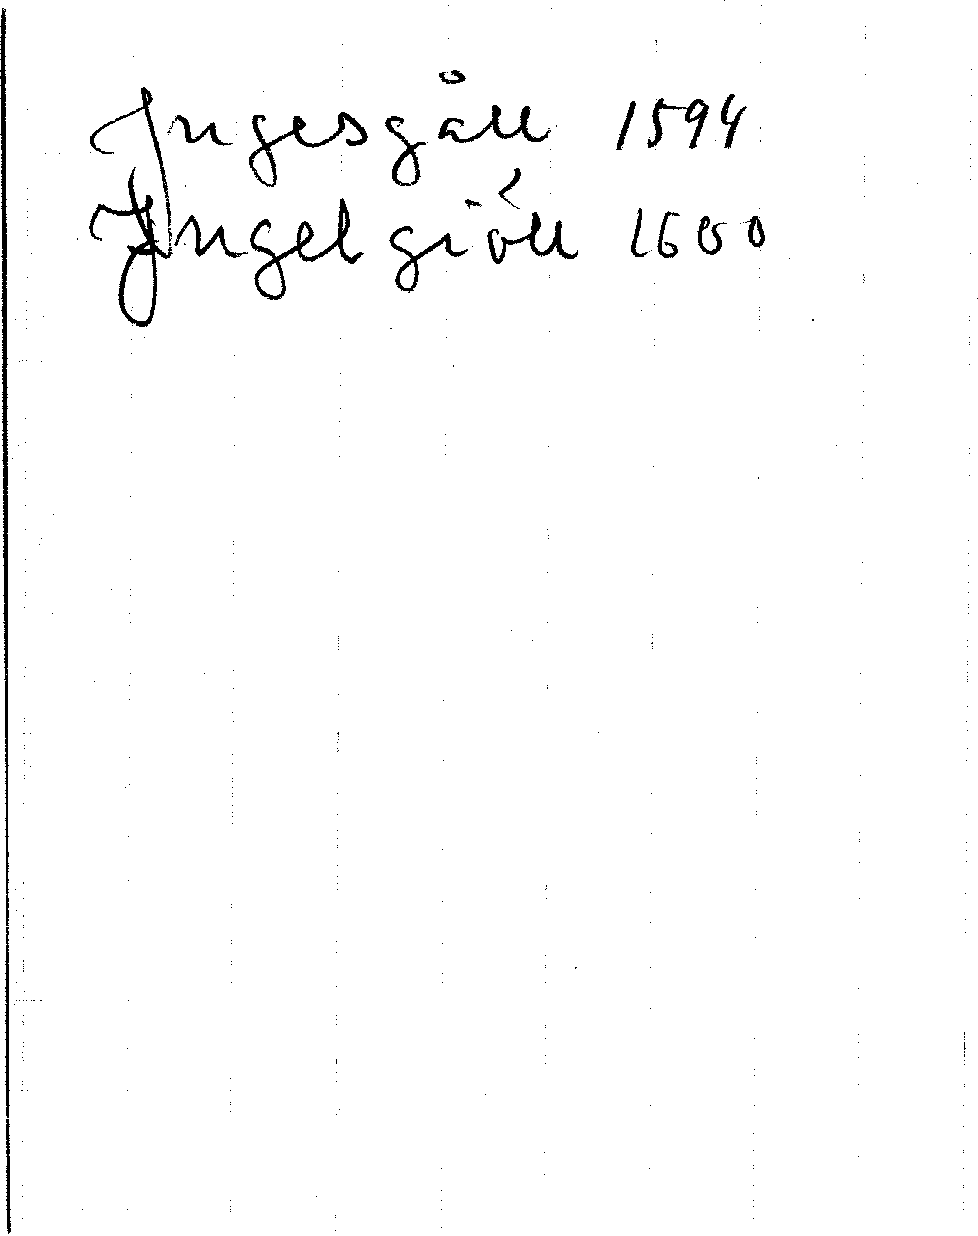 Jngesgåll 1594
Jngelgiöll 1600